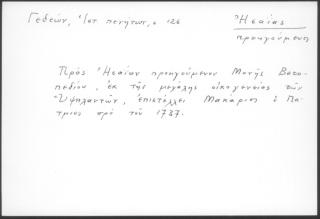 Γεδεών, Ἱστ πενήτων, σ 126
Ἡσαΐας
προηγούμενος
Πρὸς Ἡσαΐαν προηγούμενον Μονῆς Βατο-
πεδίου, ἐκ τῆς μεγάλης οἰκογενείας τῶν
Ὑψηλαντῶν, ἐπιστέλλει Μακάριος ὁ Πά-
τμιος πρὸ τοῦ 1737.